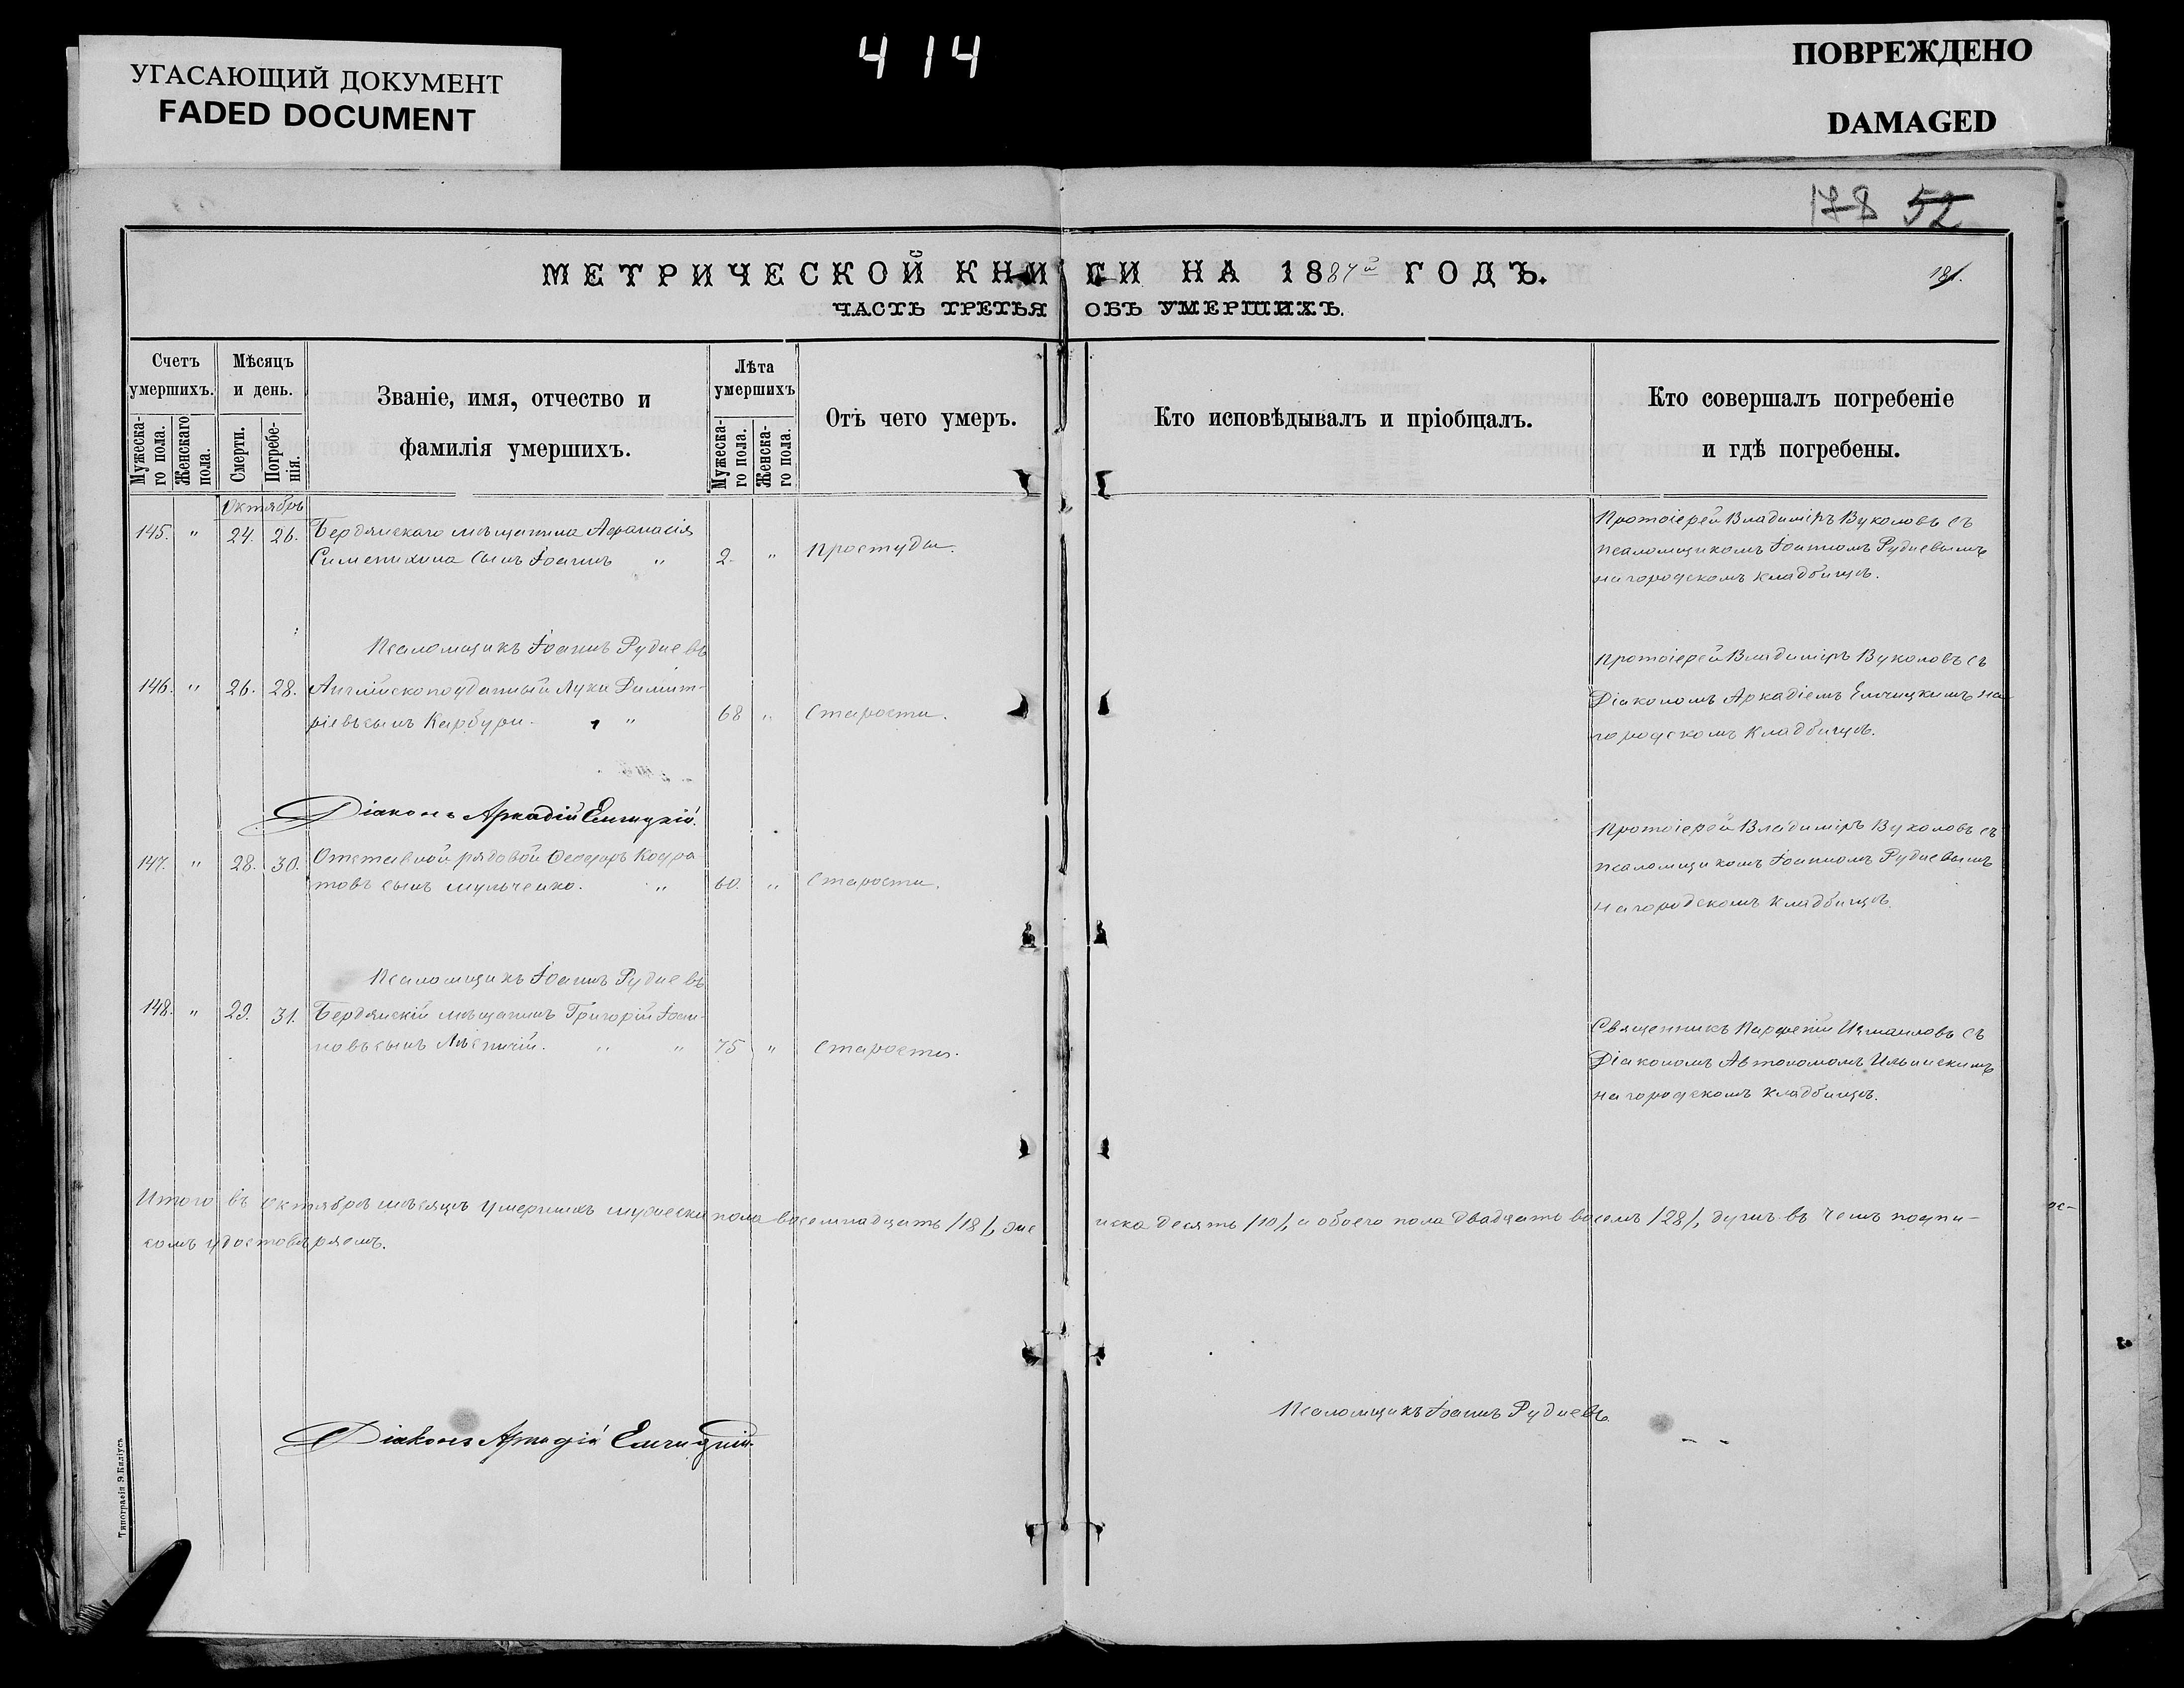 УГАСАЮЩИЙ ДОКУМЕНТ
FADED DOCUMENT
414
ПОВРЕЖДЕНО
DAMAGED
178 52
МЕТРИЧЕСКОЙ КНИГИ НА 1887й ГОДЪ.
181.
ЧАСТЬ ТРЕТЬЯ ОБЪ УМЕРШИХЪ.
Счетъ умершихъ.
Мужеска-го пола.
Женскаго пола.
Мѣсяцъ и день.
Смерти.
Погребе-нія.
Званіе, имя, отчество и
фамилія умершихъ.
Лѣта умершихъ
Мужеска-го пола.
Женска-го пола.
Отъ чего умеръ.
Кто исповѣдывалъ и пріобщалъ.
Кто совершалъ погребеніе
и гдѣ погребены.
Октябрь
145. " 24. 26. Бердянскаго мѣщанина Афанасія
сынъ Іоаннъ " 2. " простуды.
Протоіерей Владиміръ Вуколовъ съ
псаломщикомъ Іоанномъ Рудневымъ
на городскомъ кладбищѣ.
Псаломщикъ Іоаннъ Рудневъ
146. " 26. 28. Англійскоподданный Лука Димит-
ріевъ сынъ Карбури. " 68 " старости.
Протоіерей Владиміръ Вуколовъ съ
Діакономъ Аркадіемъ Елчицкимъ на
городскомъ кладбищѣ.
Діаконъ Аркадій Елчицкій.
147. " 28. 30. Отставной рядовой Ѳеодоръ Кодра
товъ сынъ Мульченко. " 60. " старости.
Протоіерей Владиміръ Вуколовъ съ
псаломщикомъ Іоанномъ Рудневымъ
на городскомъ кладбищѣ.
Псаломщикъ Іоаннъ Рудневъ
148. " 29. 31. Бердянскій мѣщанинъ Григорій Іоан-
новъ сынъ " " 75 " старости.
Священникъ Парфеній Измаиловъ съ
Діакономъ Автономомъ Ильинскимъ
на городскомъ кладбищѣ.
Итого въ октябрѣ мѣсяцѣ умершихъ мужеска пола восемнадцать /18/, женска десять /10/, а обоего пола двадцать восемь /28/, душъ въ чемъ подпи-
сомъ удостовѣряемъ.
Псаломщикъ Іоаннъ Рудневъ.
Діаконъ Аркадій Елчицкій.
Типографія Э.Килiусъ